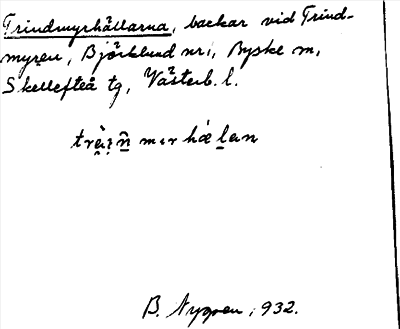 Trindmyrhällarna, backar vid Trind-
myren, Björklund nr 1, Byske sn,
Skellefteå tg, Västerb. l.
B. Nygren, 932.